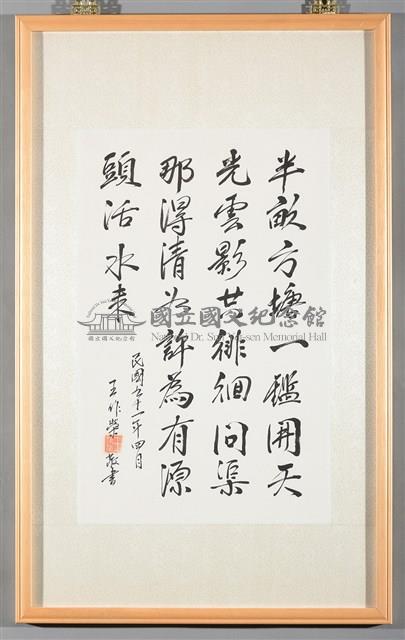 半畝方塘一鑑開天
光雲影共徘徊問渠
那得清如許為有源
頭活水來
民國九十一年四月
王作榮敬書
國立國父紀念館
國立國父紀念館
National Dr. Sun Yat-sen Memorial Hall